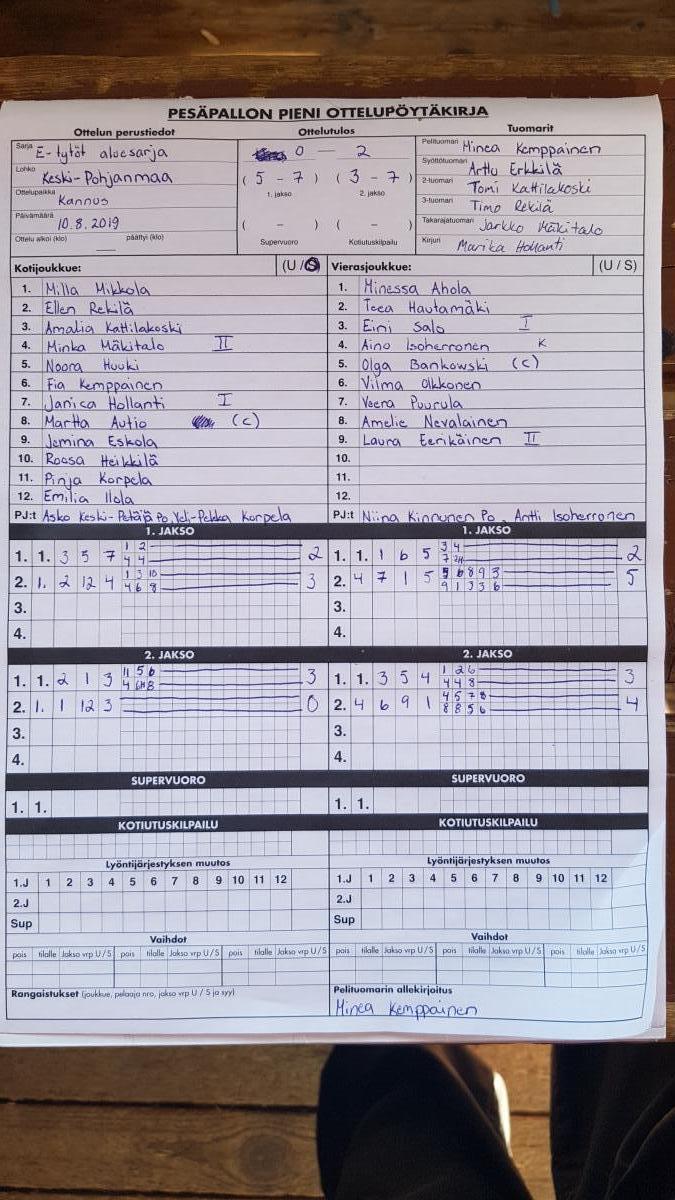 PESÄPALLON PIENI OTTELUPÖYTÄKIRJA
Ottelun perustiedot
Sarja E-tytöt aluesarja
Lohko Keski-Pohjanmaa
Ottelupaikka Kannus
Päivämäärä 10.8.2019
Ottelu alkoi (klo) — päättyi (klo)
Ottelutulos
0 — 2
( 5 - 7 ) ( 3 - 7 )
1. jakso 2. jakso
( - ) ( - )
Supervuoro Kotiutuskilpailu
Tuomarit
Pelituomari Minea Kemppainen
Syöttötuomari Arttu Erkkilä
2-tuomari Tomi Kattilakoski
3-tuomari Timo Rekilä
Takarajatuomari Jarkko Mäkitalo
Kirjuri Marika Hollanti
Kotijoukkue: (U/S)
1. Milla Mikkola
2. Ellen Rekilä
3. Amalia Kattilakoski
4. Minka Mäkitalo II
5. Noora Huuki
6. Fia Kemppainen
7. Janica Hollanti I
8. Martta Autio (c)
9. Jemina Eskola
10. Roosa Heikkilä
11. Pinja Korpela
12. Emilia Ilola
PJ:t Asko Keski-Petäjä Po, Veli-Pekka Korpela
Vierasjoukkue: (U / S)
1. Minessa Ahola
2. Teea Hautamäki
3. Eini Salo I
4. Aino Isoherronen K
5. Olga Bankowski (c)
6. Vilma Olkkonen
7. Veera Puurula
8. Amelie Nevalainen
9. Laura Eerikäinen II
10.
11.
12.
PJ:t Niina Kinnunen Po, Antti Isoherronen
1. JAKSO
1. 1. 3 5 7 1 2 2
4 4
2. 1. 2 12 4 1 3 10 3
4 6 8
3.
4.
1. JAKSO
1. 1. 1 6 5 3 4 2
7
2. 4 7 1 5 5 6 8 9 3 5
9 1 3 3 6
3.
4.
2. JAKSO
1. 1. 2 1 3 11 5 6 3
4
2. 1. 1 12 3 0
3.
4.
2. JAKSO
1. 1. 3 5 4 1 2 6 3
4 4 8
2. 4 6 9 1 4 5 7 8 4
8 8 5 6
3.
4.
SUPERVUORO
1. 1.
SUPERVUORO
1. 1.
KOTIUTUSKILPAILU
KOTIUTUSKILPAILU
Lyöntijärjestyksen muutos
1.J 1 2 3 4 5 6 7 8 9 10 11 12
2.J
Sup
Lyöntijärjestyksen muutos
1.J 1 2 3 4 5 6 7 8 9 10 11 12
2.J
Sup
Vaihdot
pois tilalle Jakso vrp U/S pois tilalle Jakso vrp U/S pois tilalle Jakso vrp U/S
Vaihdot
pois tilalle Jakso vrp U/S pois tilalle Jakso vrp U/S pois tilalle Jakso vrp U/S
Rangaistukset (joukkue, pelaaja nro, jakso vrp U / S ja syy)
Pelituomarin allekirjoitus
Minea Kemppainen